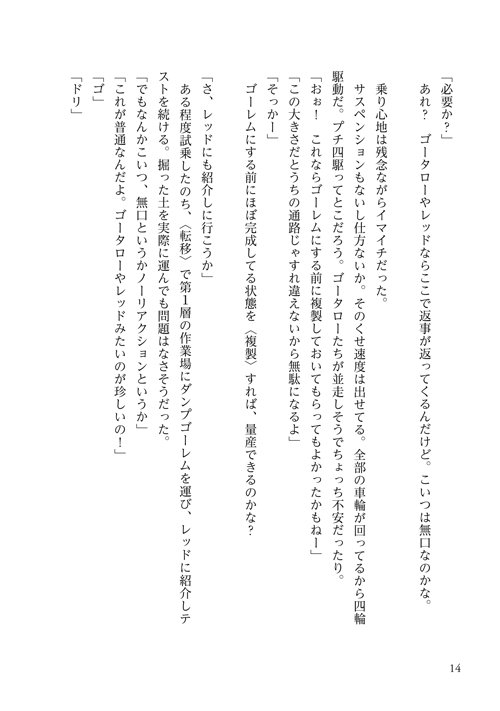 「必要か？」
あれ？　ゴータローやレッドならここで返事が返ってくるんだけど。こいつは無口なのかな。
乗り心地は残念ながらイマイチだった。
サスペンションもないし仕方ないか。そのくせ速度は出せてる。全部の車輪が回ってるから四輪
駆動だ。プチ四駆ってとこだろう。ゴータローたちが並走しそうでちょっち不安だったり。
「おぉ！　これならゴーレムにする前に複製しておいてもらってもよかったかもねー」
「この大きさだとうちの通路じゃすれ違えないから無駄になるよ」
「そっかー」
ゴーレムにする前にほぼ完成してる状態を〈複製〉すれば、量産できるのかな？
「さ、レッドにも紹介しに行こうか」
ある程度試乗したのち、〈転移〉で第１層の作業場にダンプゴーレムを運び、レッドに紹介しテ
ストを続ける。掘った土を実際に運んでも問題はなさそうだった。
「でもなんかこいつ、無口というかノーリアクションというか」
「これが普通なんだよ。ゴータローやレッドみたいのが珍しいの！」
「ゴ」
「ドリ」
14